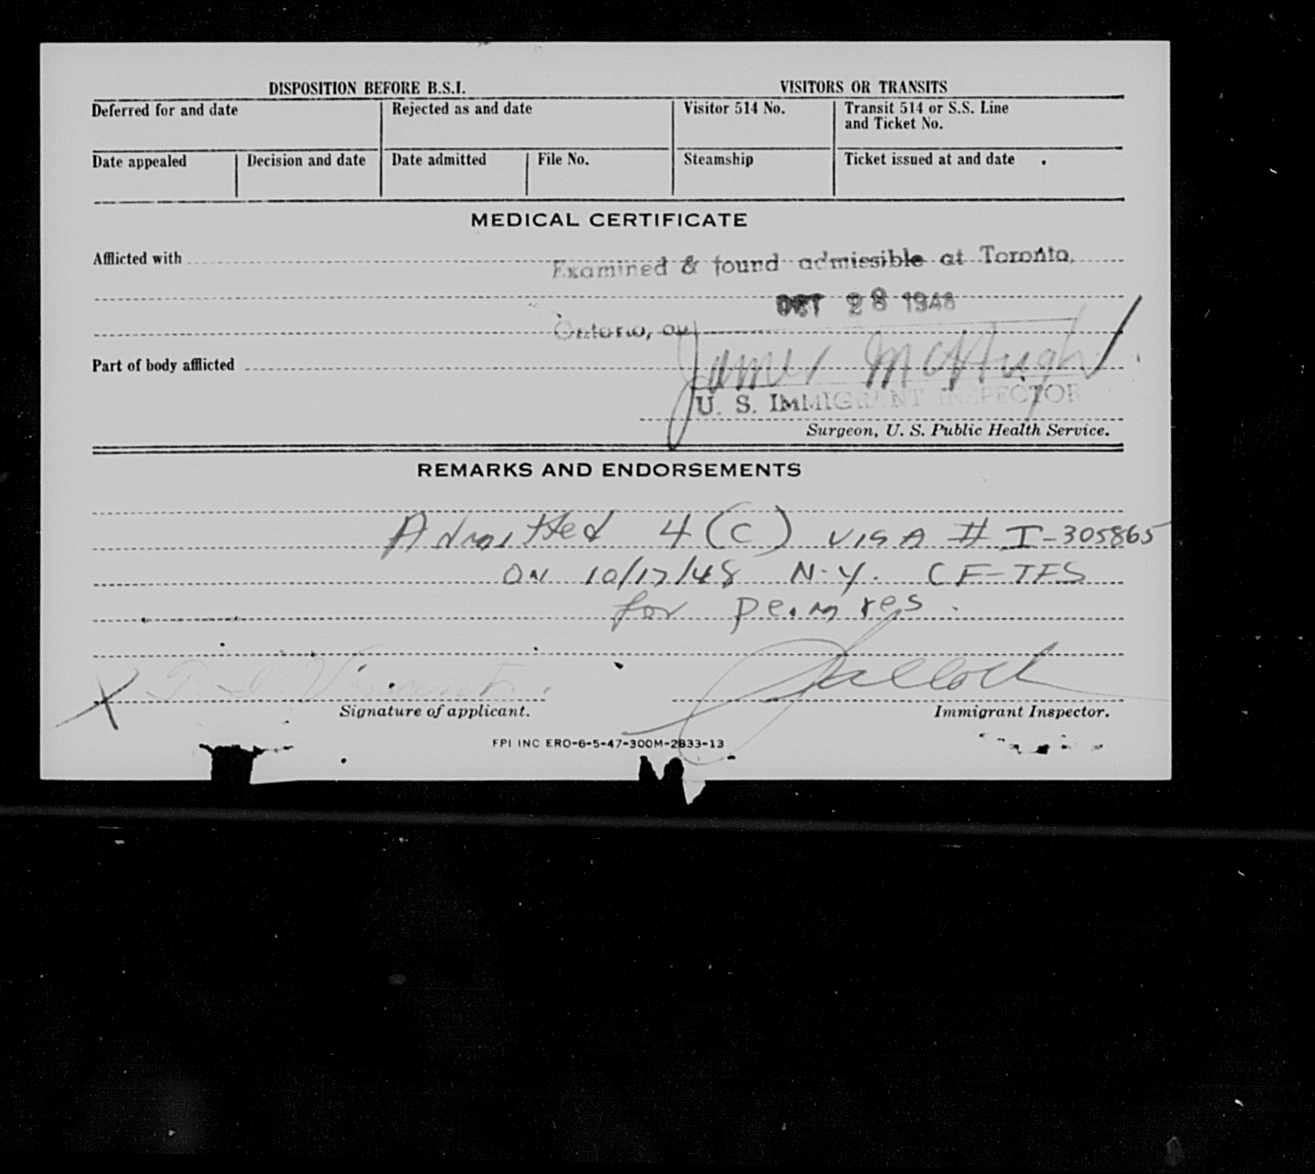 DISPOSITION BEFORE B.S.I. VISITORS OR TRANSITS
Deferred for and date Rejected as and date Visitor 514 No. Transit 514 or S.S. Line
and Ticket No.
Date appealed Decision and date Date admitted File No. Steamship Ticket issued at and date
MEDICAL CERTIFICATE
Afflicted with Examined & found admissible at Toronto,
OCT 28 1948
Ontario, on
Part of body afflicted James McHugh
U. S. IMMIGRANT INSPECTOR
Surgeon, U. S. Public Health Service.
REMARKS AND ENDORSEMENTS
Admitted 4(C) VISA # I-305865
ON 10/17/48 N.Y. CF-TFS
for perm res.
X Vincent
Signature of applicant. Immigrant Inspector.
FPI INC ERO-6-5-47-300M-2833-13